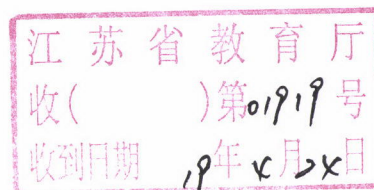 江苏省教育厅
收( )第01919号
收到日期 19年4月24日